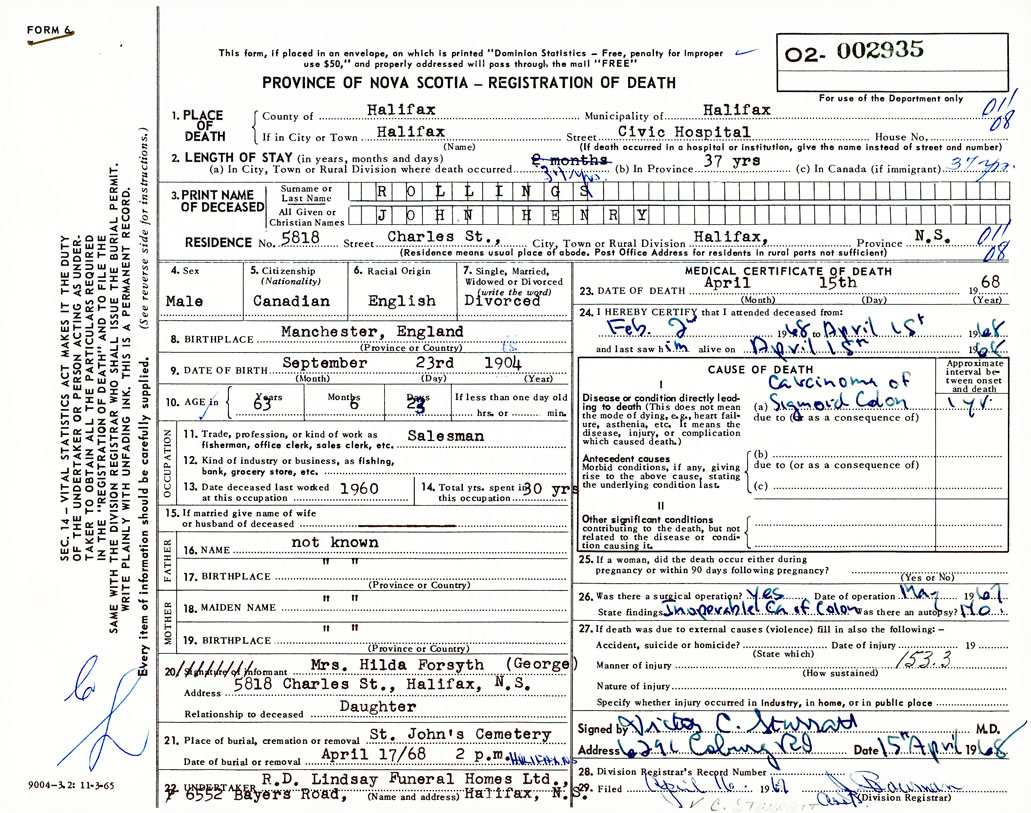 FORM 6
This form, if placed in an envelope, on which is printed "Dominion Statistics – Free, penalty for improper
use $50," and properly addressed will pass through the mail "FREE"
02- 002935
PROVINCE OF NOVA SCOTIA – REGISTRATION OF DEATH
For use of the Department only
011
08
1. PLACE OF DEATH
County of Halifax Municipality of Halifax
If in City or Town Halifax Street Civic Hospital House No.
(Name) (If death occurred in a hospital or institution, give the name instead of street and number)
2. LENGTH OF STAY (in years, months and days)
(a) In City, Town or Rural Division where death occurred 2 months 37 yrs. (b) In Province 37 yrs (c) In Canada (if immigrant) 37 yrs.
3. PRINT NAME OF DECEASED
Surname or Last Name ROLLINGS
All Given or Christian Names JOHN HENRY
RESIDENCE No. 5818 Street Charles St., City, Town or Rural Division Halifax, Province N.S.
(Residence means usual place of abode. Post Office Address for residents in rural parts not sufficient)
011
08
4. Sex
Male
5. Citizenship
(Nationality)
Canadian
6. Racial Origin
English
7. Single, Married,
Widowed or Divorced
(write the word)
Divorced
8. BIRTHPLACE Manchester, England
(Province or Country)
9. DATE OF BIRTH September 23rd 1904
(Month) (Day) (Year)
10. AGE in Years 63 Months 6 Days 23 If less than one day old
hrs. or min.
OCCUPATION
11. Trade, profession, or kind of work as Salesman
fisherman, office clerk, sales clerk, etc.
12. Kind of industry or business, as fishing,
bank, grocery store, etc.
13. Date deceased last worked at this occupation 1960
14. Total yrs. spent in this occupation 30 yrs
15. If married give name of wife
or husband of deceased
FATHER
16. NAME not known
17. BIRTHPLACE " "
(Province or Country)
MOTHER
18. MAIDEN NAME " "
19. BIRTHPLACE " "
(Province or Country)
20. Signature of Informant Mrs. Hilda Forsyth (George)
Address 5818 Charles St., Halifax, N.S.
Relationship to deceased Daughter
21. Place of burial, cremation or removal St. John's Cemetery
Date of burial or removal April 17/68 2 p.m. HALIFAX NS
22. UNDERTAKER R.D. Lindsay Funeral Homes Ltd.,
6552 Bayers Road, (Name and address) Halifax, N.S.
MEDICAL CERTIFICATE OF DEATH
23. DATE OF DEATH April 15th 1968
(Month) (Day) (Year)
24. I HEREBY CERTIFY that I attended deceased from:
Feb. 2nd 1968 to April 15th 1968
and last saw him alive on April 15th 1968
CAUSE OF DEATH
Approximate interval between onset and death
I
Disease or condition directly leading to death (This does not mean the mode of dying, e.g., heart failure, asthenia, etc. It means the disease, injury, or complication which caused death.)
(a) Carcinoma of
Sigmoid Colon 1 yr.
due to (or as a consequence of)
Antecedent causes
Morbid conditions, if any, giving rise to the above cause, stating the underlying condition last.
(b)
due to (or as a consequence of)
(c)
II
Other significant conditions
contributing to the death, but not related to the disease or condition causing it.
25. If a woman, did the death occur either during
pregnancy or within 90 days following pregnancy?
(Yes or No)
26. Was there a surgical operation? Yes Date of operation May 1967
State findings Inoperable Ca of Colon Was there an autopsy? No
27. If death was due to external causes (violence) fill in also the following: –
Accident, suicide or homicide? Date of injury 19
(State which)
Manner of injury 153.3
(How sustained)
Nature of injury
Specify whether injury occurred in industry, in home, or in public place
Signed by Victor C. Sterratt M.D.
Address 6291 Coburg Rd Date 15th April 1968
28. Division Registrar's Record Number
29. Filed April 16 1968 Bowman
(Division Registrar)
SEC. 14 – VITAL STATISTICS ACT MAKES IT THE DUTY
OF THE UNDERTAKER OR PERSON ACTING AS UNDER-
TAKER TO OBTAIN ALL THE PARTICULARS REQUIRED
IN THE "REGISTRATION OF DEATH" AND TO FILE THE
SAME WITH THE DIVISION REGISTRAR WHO SHALL ISSUE THE BURIAL PERMIT.
WRITE PLAINLY WITH UNFADING INK. THIS IS A PERMANENT RECORD.
Every item of information should be carefully supplied. (See reverse side for instructions.)
9004-3.2: 11-3-65